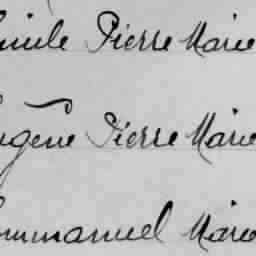 Emile Pierre Marie
Eugène Pierre Marie
Emmanuel Marie